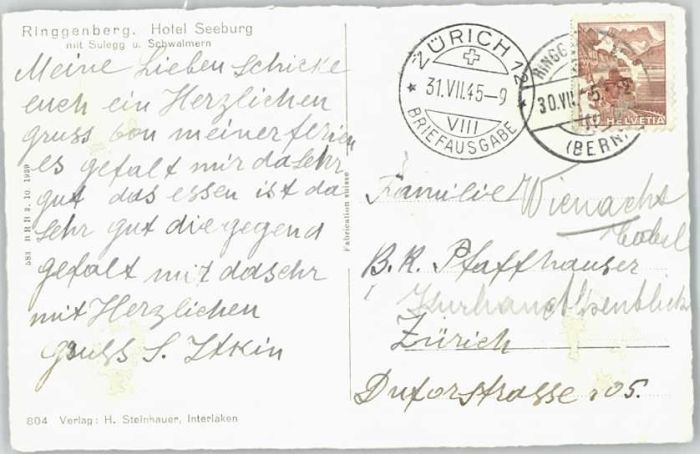 Ringgenberg. Hotel Seeburg
mit Sulegg u. Schwalmern
Meine Lieben Schicke
euch ein Herzlichen
gruss von meiner ferien
es gefalt mir da sehr
gut das essen ist da
sehr gut die gegend
gefalt mit da sehr
mit Herzlichen
gruss S. Itkin
804 Verlag: H. Steinhauer, Interlaken
583 B R B 3. 10. 1939
Fabrication suisse
ZÜRICH 12
31.VII.45-9
VIII
BRIEFAUSGABE
RINGG
30.VII. 5
(BERN)
HELVETIA
Familie Wienacht
B. R. Pfaffhauser
Zürich
Duforstrasse 205.